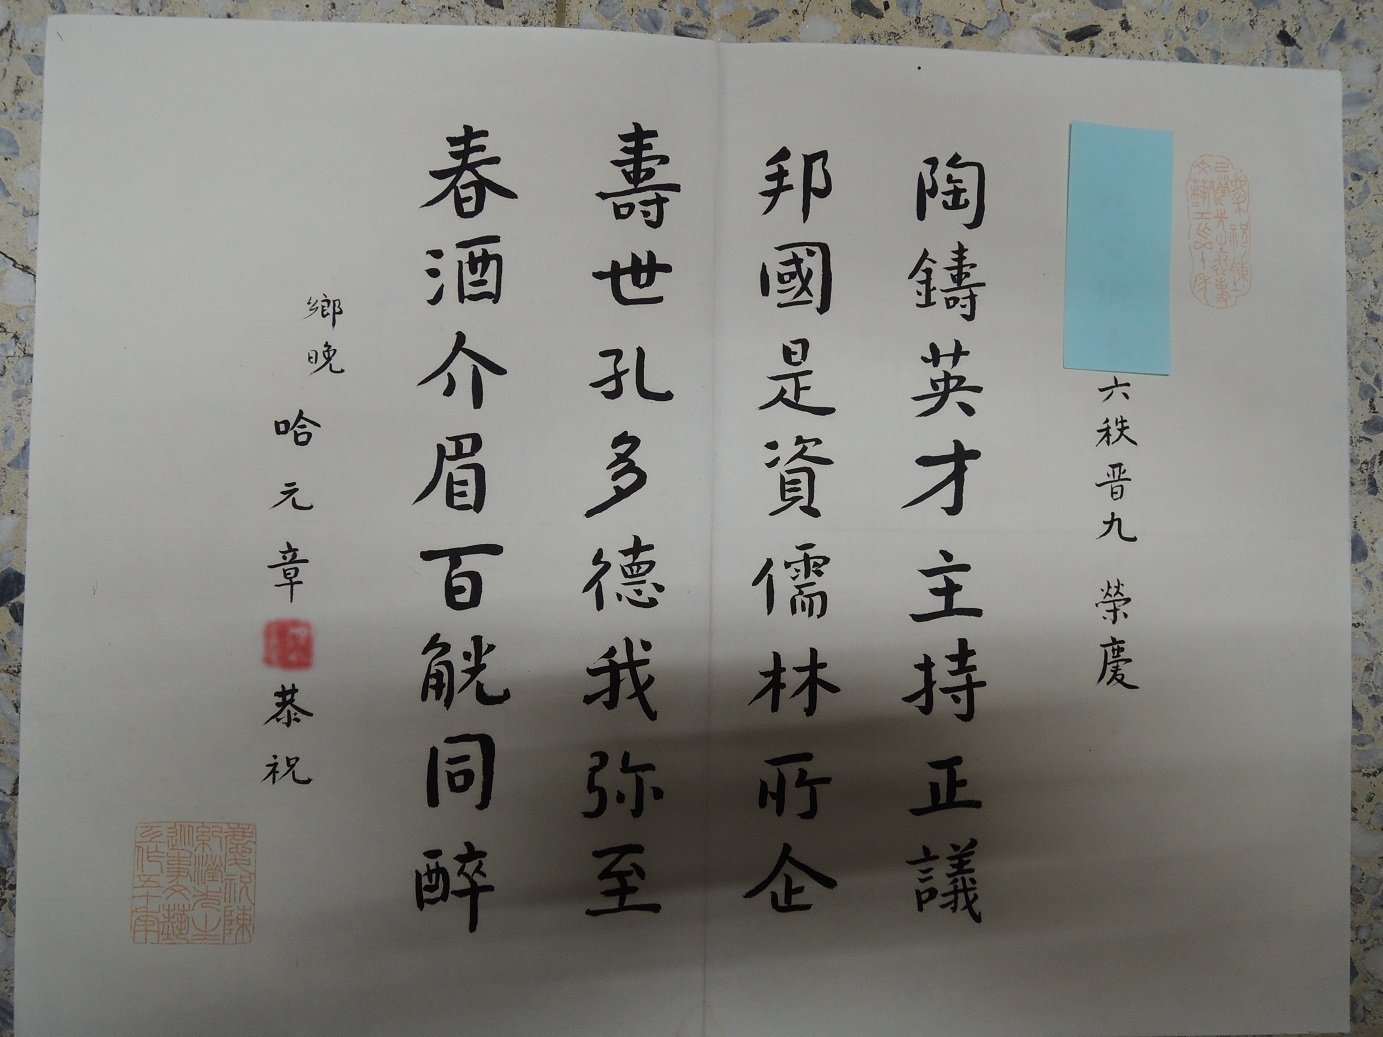 六秩晋九 榮慶
陶鑄英才主持正議
邦國是資儒林所企
壽世孔多德我弥至
春酒介眉百觥同醉
鄉晚
哈元章 恭祝